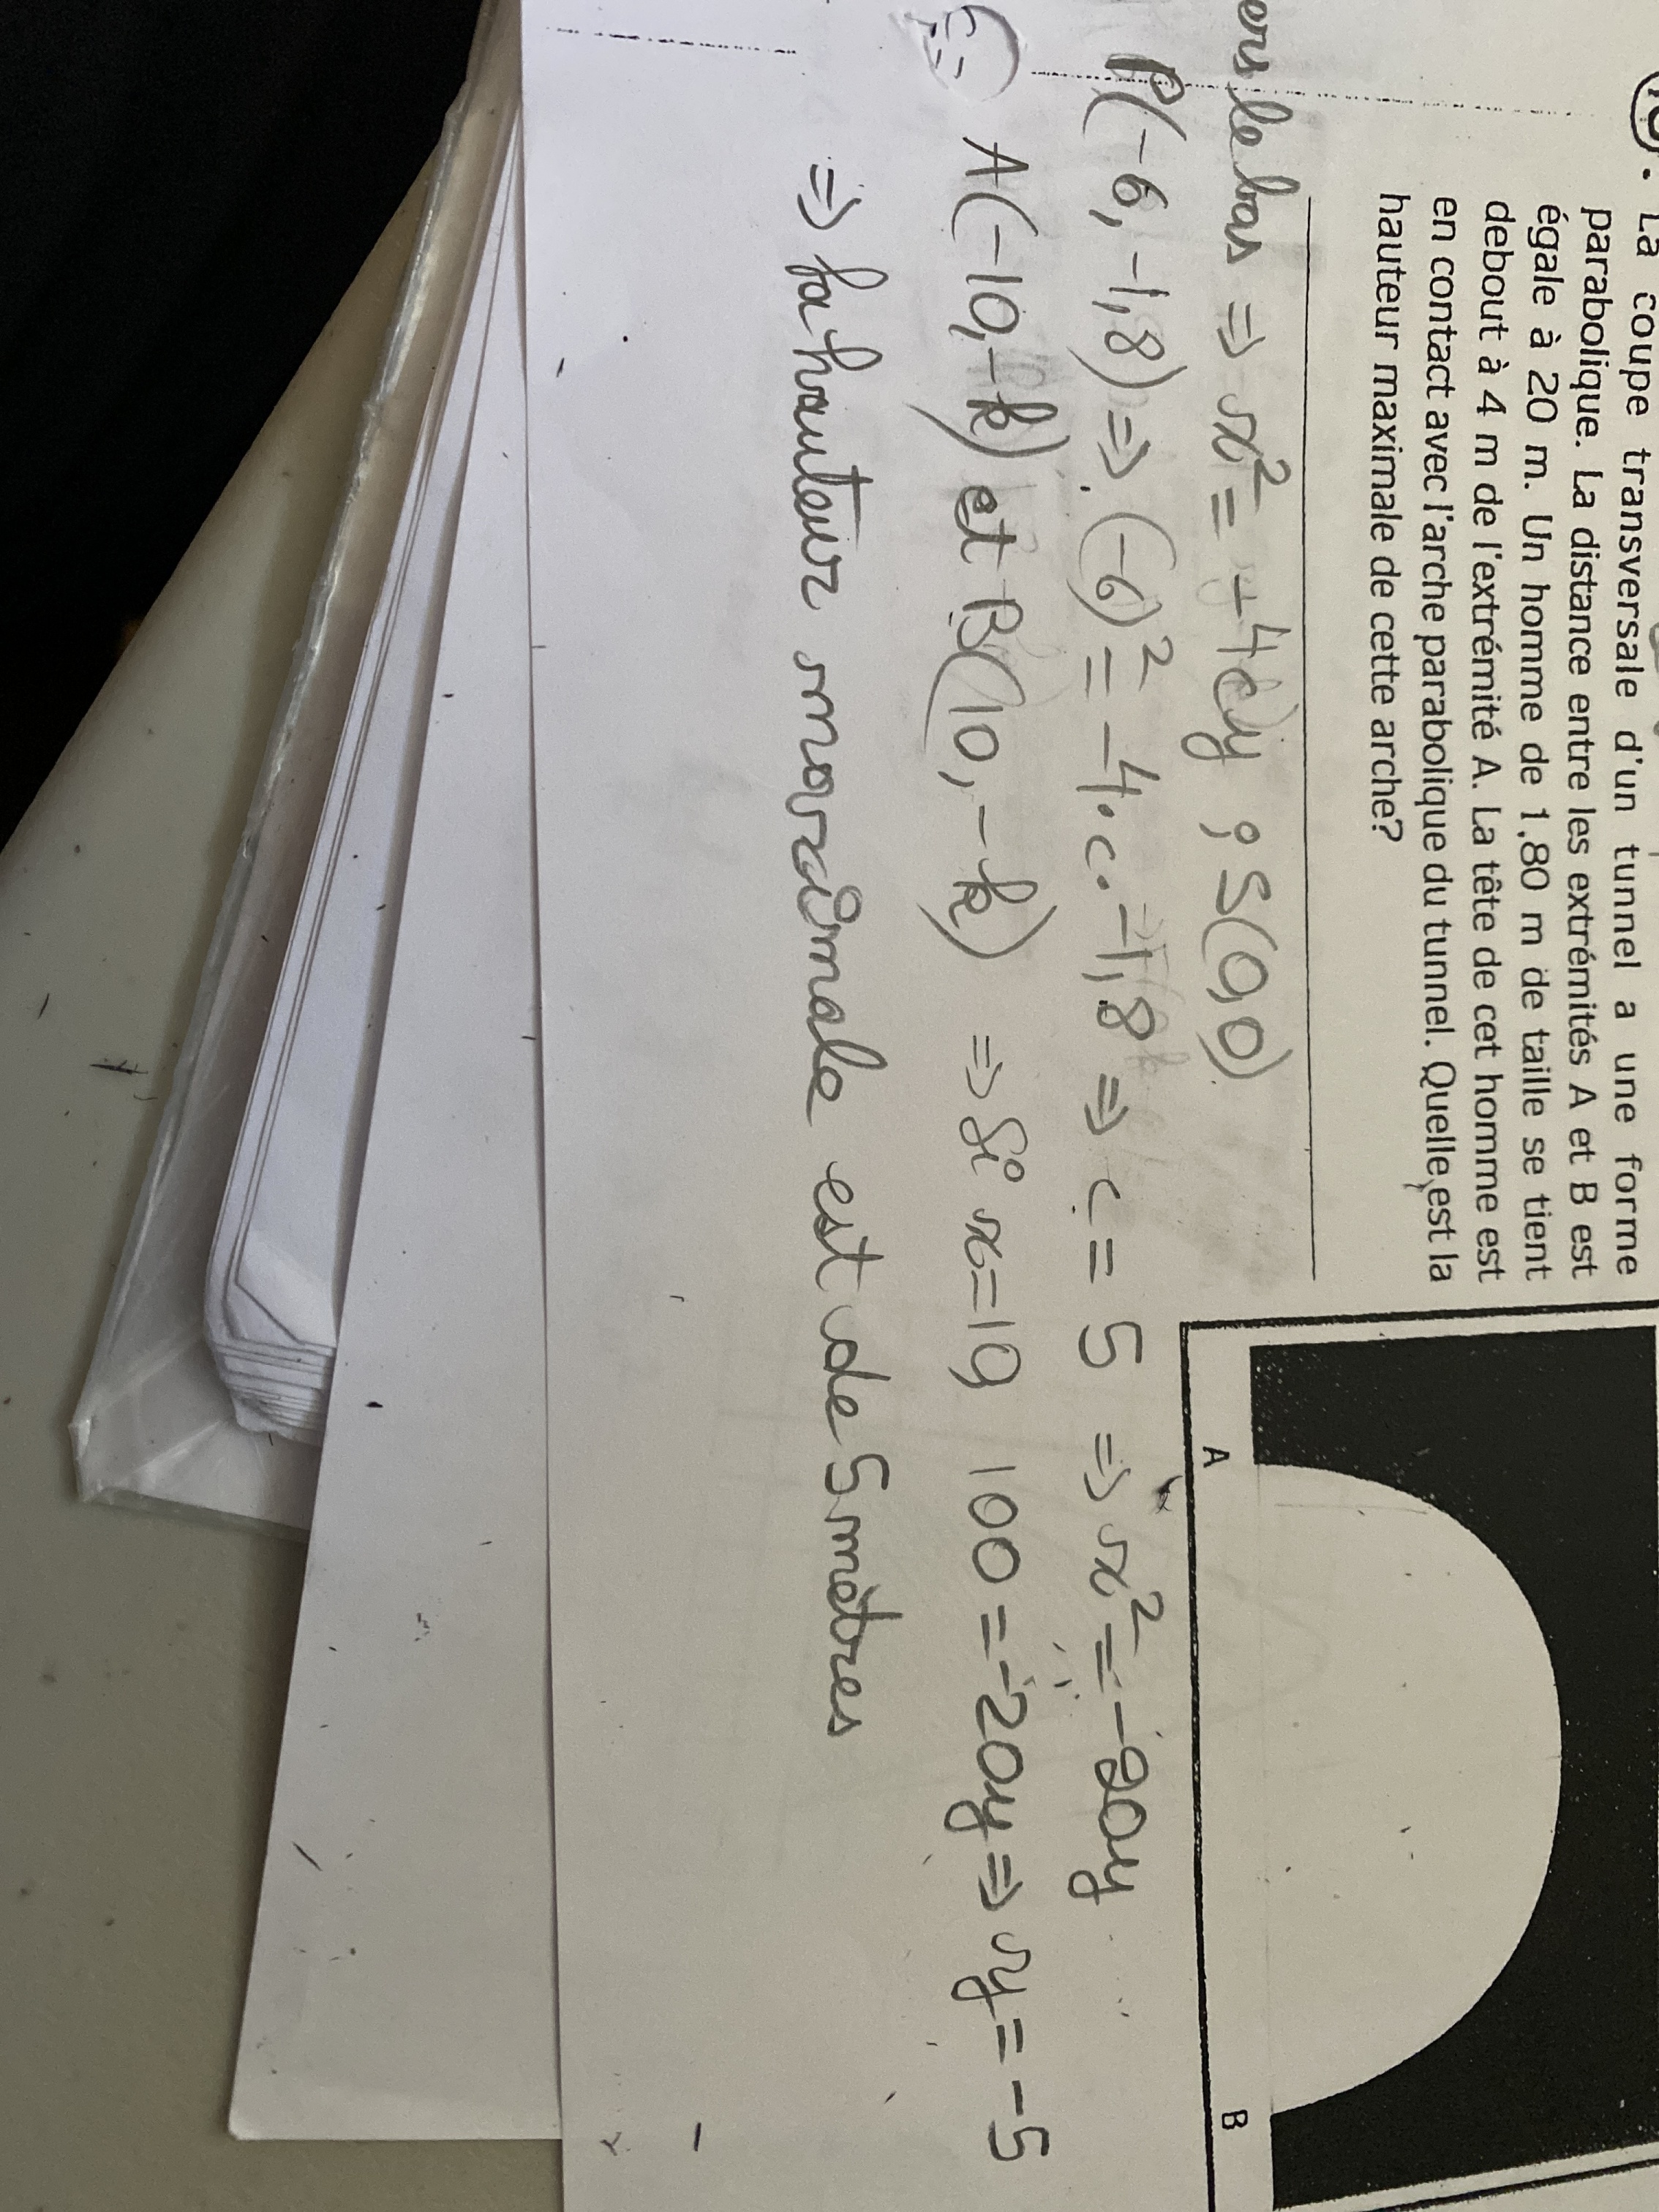 La coupe transversale d'un tunnel a une forme
parabolique. La distance entre les extrémités A et B est
égale à 20 m. Un homme de 1,80 m de taille se tient
debout à 4 m de l'extrémité A. La tête de cet homme est
en contact avec l'arche parabolique du tunnel. Quelle est la
hauteur maximale de cette arche?
A
B
ers le bas => x² = -4cy ; S(0,0)
P(-6,-1,8) => (-6)² = -4·c·-1,8 => c = 5 => x² = -20y
A(-10,-k) et B(10,-k) => Si x=10, 100 = -20y => y = -5
=> la hauteur maximale est de 5 mètres